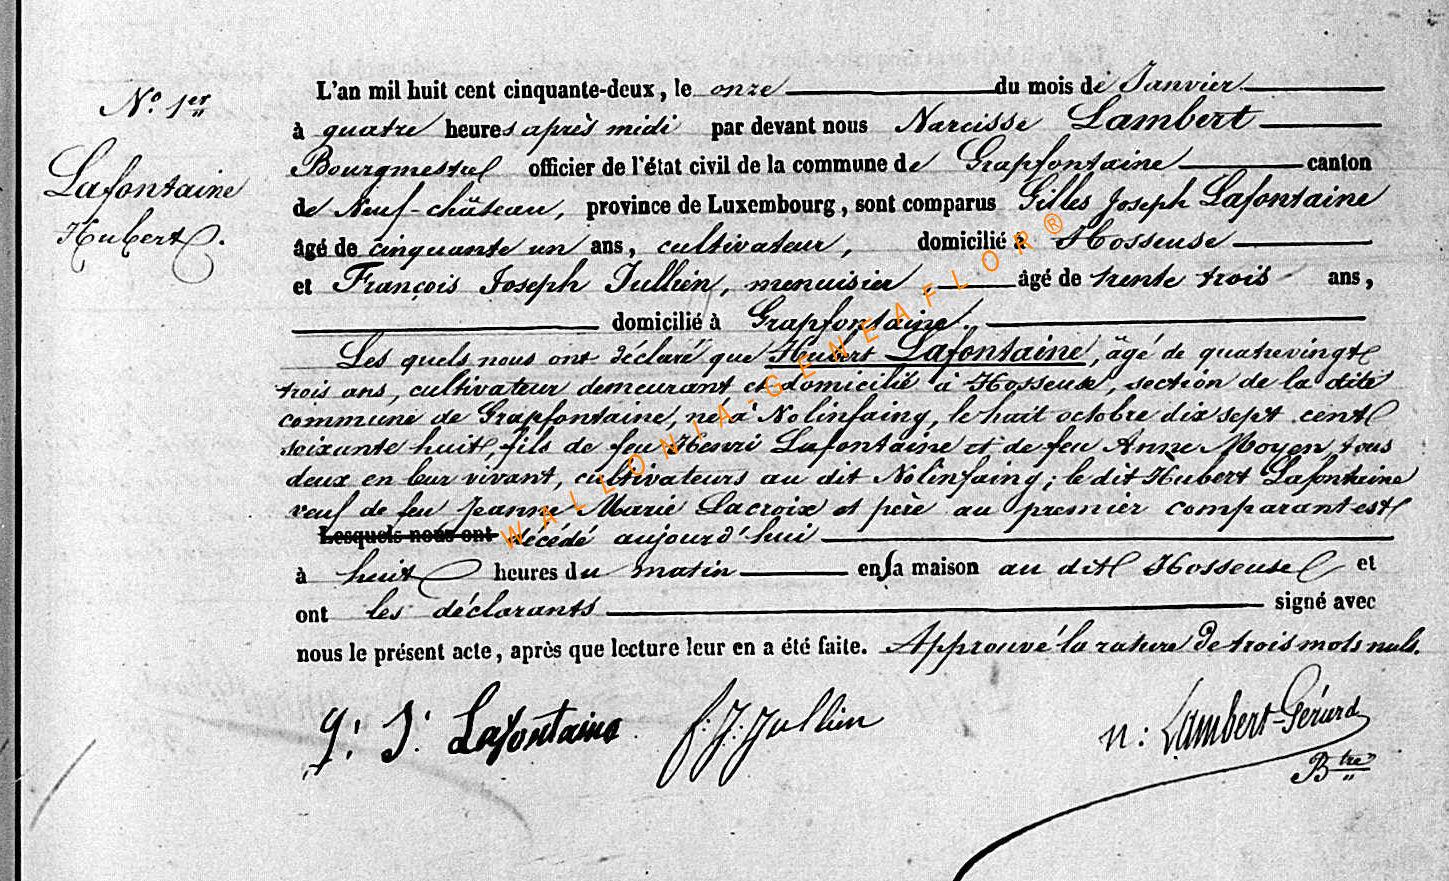 N.° 1er
Lafontaine
Hubert.
L'an mil huit cent cinquante-deux, le onze du mois de Janvier
à quatre heures après midi par devant nous Narcisse Lambert
Bourgmestre officier de l'état civil de la commune de Grapfontaine canton
de Neuf-château, province de Luxembourg, sont comparus Gilles Joseph Lafontaine
âgé de cinquante un ans, cultivateur, domicilié à Hosseuse
et François Joseph Jullien, menuisier âgé de trente trois ans,
domicilié à Grapfontaine.
Les quels nous ont déclaré que Hubert Lafontaine, âgé de quatrevingt
trois ans, cultivateur demeurant et domicilié à Hosseuse, section de la dite
commune de Grapfontaine, né à Nolinfaing, le huit octobre dix sept cent
soixante huit, fils de feu Henri Lafontaine et de feu Anne Moyen, tous
deux en leur vivant, cultivateurs au dit Nolinfaing; le dit Hubert Lafontaine
veuf de feu Jeanne Marie Lacroix et père au premier comparant est
Lesquels nous ont décédé aujourd'hui
à huit heures du matin en sa maison au dit Hosseuse et
ont les déclarants signé avec
nous le présent acte, après que lecture leur en a été faite. Approuvé la rature de trois mots nuls.
g: J: Lafontaine f. J. Jullien n: Lambert-Gérard
Btre
WALLONIA-GENEAFLOR®